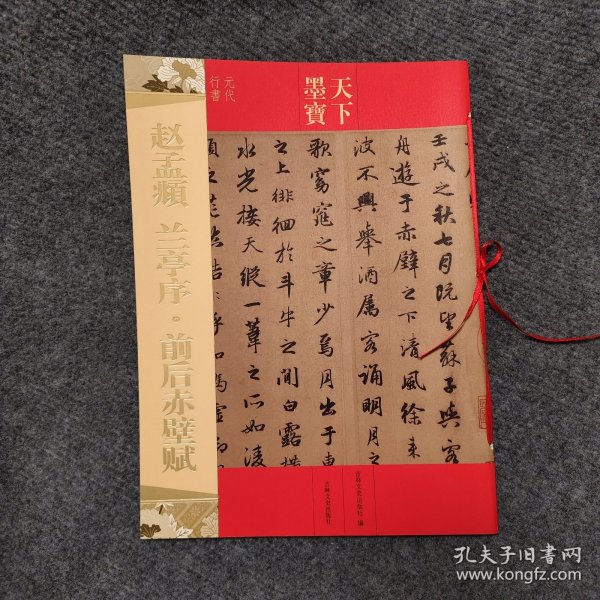 天下
墨寶
元代
行書
赵孟頫 兰亭序·前后赤壁赋
壬戌之秋七月既望蘇子與客
舟遊于赤壁之下清風徐来
波不興舉酒属客誦明月之
歌窈窕之章少焉月出于東
之上徘徊於斗牛之間白露横
水光接天縱一葦之所如淩
吉林文史出版社 编
吉林文史出版社
孔夫子旧书网
www.kongfz.com